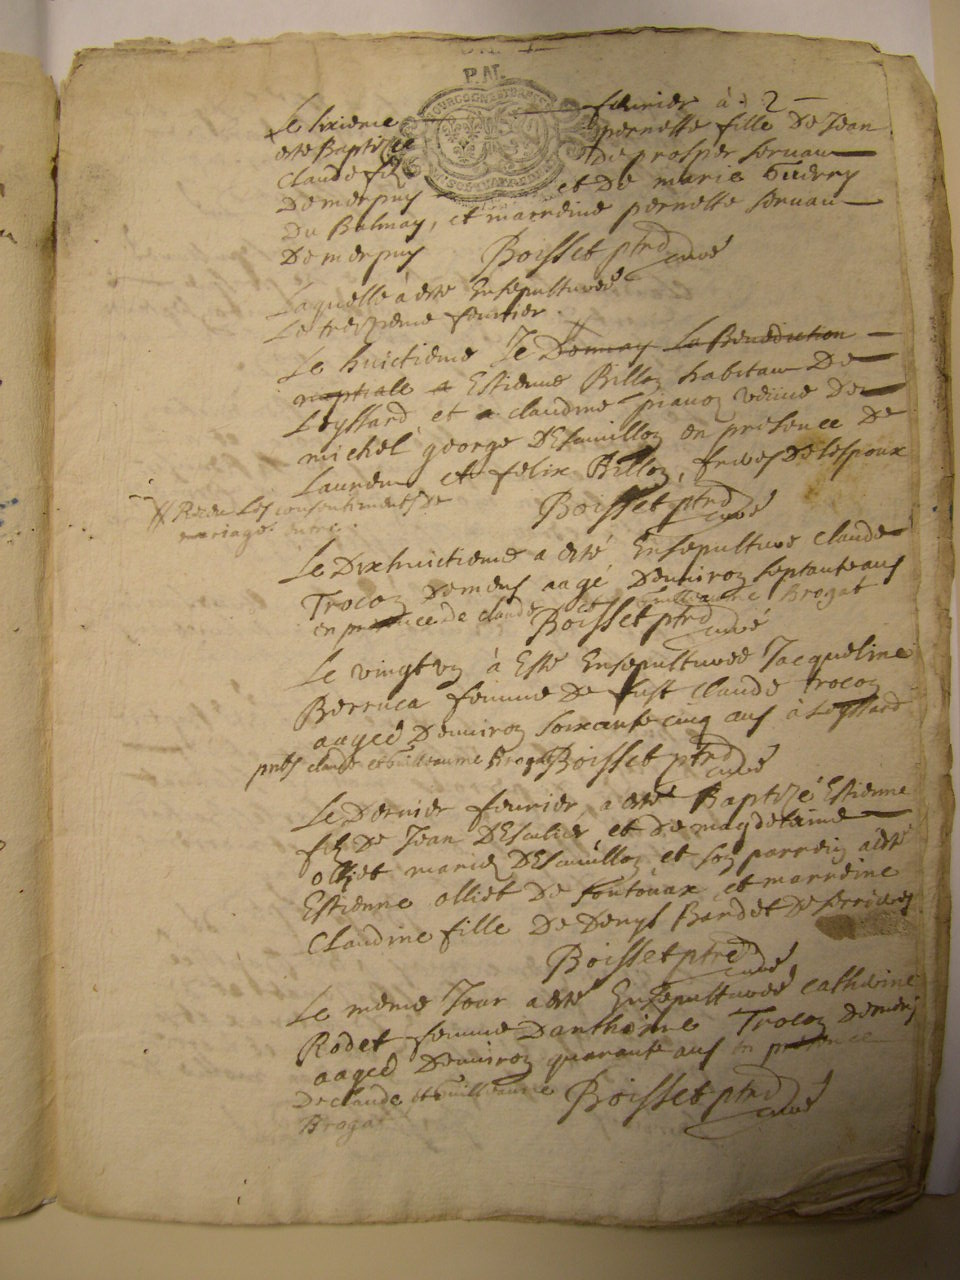 P.N.
BOURGOGNE ET BRESSE
Le sixieme fevrier à
este Baptisee pernette fille De Jean
Claude fi de prosper servau
De merpuy et De marie
Du Balmay, et marreine pernette servau
De merpuy Boisset ptre curé
Laquelle à esté Ensepulturée
Le treizieme fevrier.
Le huictieme Je Donnay La Benediction
nuptiale a Estienne Billoz habitau De
Leyssard et a claudine pianoz veuve de
michel george D'Escuilloz en presence de
Lauren et felix Billoz, freres De lespoux
Receu Les consentiments De
mariage entre
Boisset ptre curé
Le Dix huictieme a esté Ensepulturé claude
Trocoz Demens aagé Denviroz septante ans
en presence de claude et Guilleaume Brogat
Boisset ptre curé
Le vingt uz à Esté Ensepulturée Jacqueline
Berruca femme De fust claude Trocoz
aagée Denviroz soixante cinq ans à Leyssard
pnts claude et Guilleaume Brogat Boisset ptre curé
Le Dernier fevrier, a esté Baptizé Estienne
filz De Jean D'Esculier et De magdeleine
olliet mariez D'Escuilloz et soz parreiz a esté
Estienne olliet De soutouax et marreine
Claudine fille De Denys Bardet De serrieres
Boisset ptre curé
Le meme Jour a esté Ensepulturée catherine
Rodet femme D'anthoinne Trocoz Demens
aagée Denviroz quarante ans en presence
De claude et Guilleaume Boisset ptre curé
Brogat